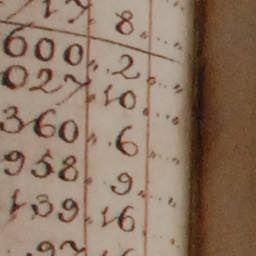 717. 8....
600.. 2....
027. 10....
360. 6....
958. 9....
139. 16....
97